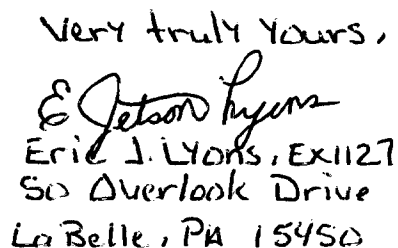 Very truly yours,
E Jetson Lyons
Eric J. Lyons, EX1127
50 Overlook Drive
LaBelle, PA 15450